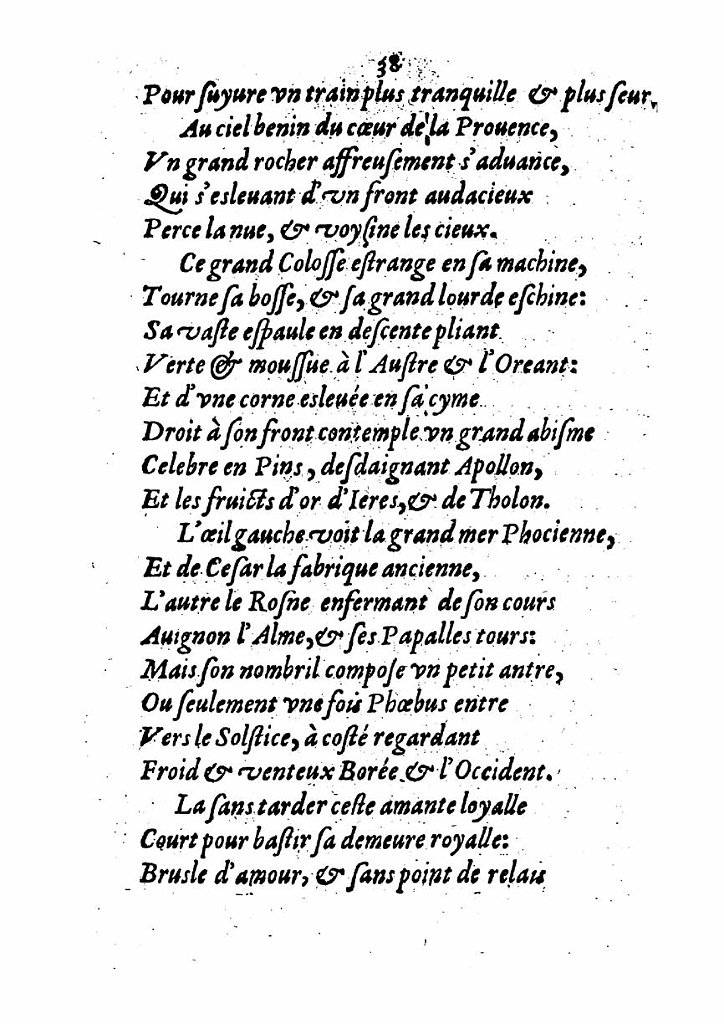 38
Pour ſuyure vn train plus tranquille & plus ſeur.
Au ciel benin du cœur de la Prouence,
Vn grand rocher affreuſement s'aduance,
Qui s'esleuant d'vn front audacieux
Perce la nue, & voyſine les cieux.
Ce grand Coloſſe eſtrange en ſa machine,
Tourne ſa boſſe, & ſa grand lourde eſchine:
Sa vaſte eſpaule en deſcente pliant
Verte & mouſſue à l'Auſtre & l'Oreant:
Et d'vne corne esleuée en ſa cyme
Droit à ſon front contemple vn grand abiſme
Celebre en Pins, deſdaignant Apollon,
Et les fruicts d'or d'Ieres, & de Tholon.
L'œil gauche voit la grand mer Phocienne,
Et de Ceſar la fabrique ancienne,
L'autre le Roſne enfermant de ſon cours
Auignon l'Alme, & ſes Papalles tours:
Mais ſon nombril compoſe vn petit antre,
Ou ſeulement vne fois Phœbus entre
Vers le Solſtice, à coſté regardant
Froid & venteux Borée & l'Occident.
La ſans tarder ceſte amante loyalle
Court pour baſtir ſa demeure royalle:
Brusle d'amour, & ſans point de relais